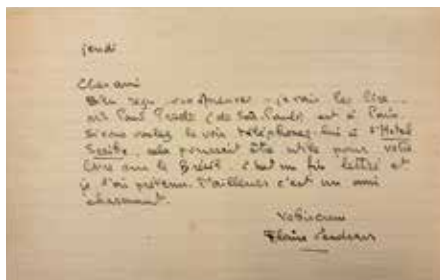 jeudi
Cher ami
Bien reçu vos épreuves - je vais les lire.
Paul Prado (de São Paulo) est à Paris.
Si vous voulez le voir téléphonez-lui à l'Hotel
Scribe, cela pourrait être utile pour votre
livre sur le Brésil. C'est un fin lettré et
je l'ai prévenu. D'ailleurs c'est un ami
charmant.
Blaise Cendrars